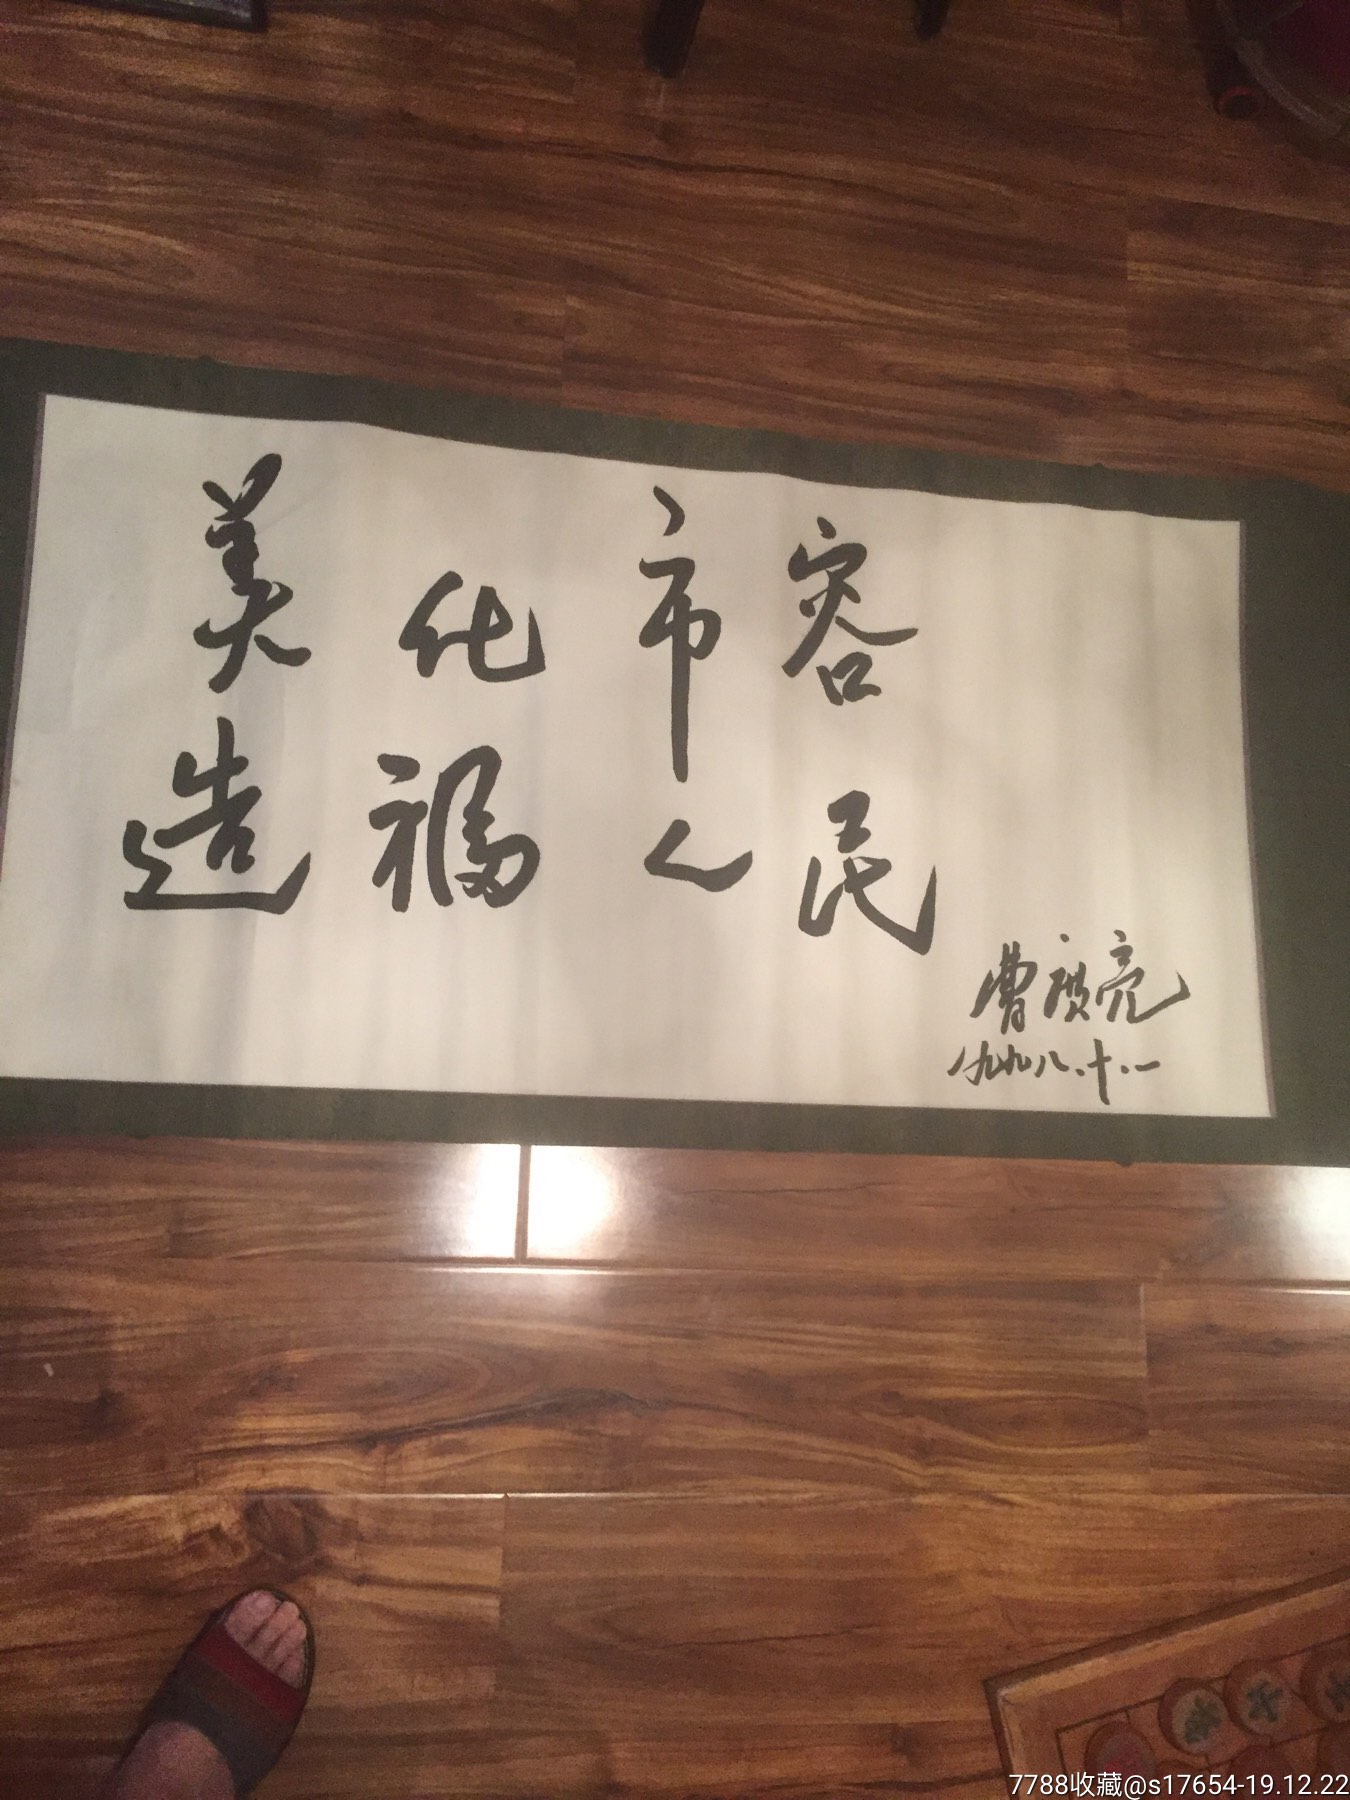 美化市容
造福人民
曹庆亮
一九九八.十.一
7788收藏@s17654-19.12.22